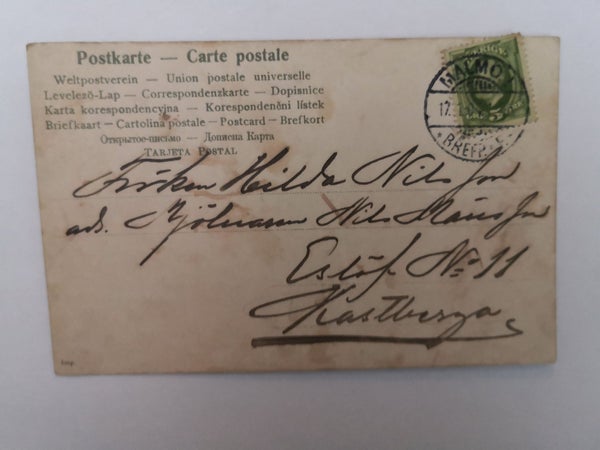 Postkarte — Carte postale
Weltpostverein — Union postale universelle
Levelezö-Lap — Correspondenzkarte — Dopisnice
Karta korespondencyjna — Korespondenčni listek
Briefkaart — Cartolina postale — Postcard — Brefkort
Открытое-письмо — Дописна Карта
TARJETA POSTAL
SVERIGE
5
MALMÖ
17
BREFP
Fröken Hilda Nilsson
ads. Mjölnaren Nils Månsson
Eslöf No 11
Kastberga